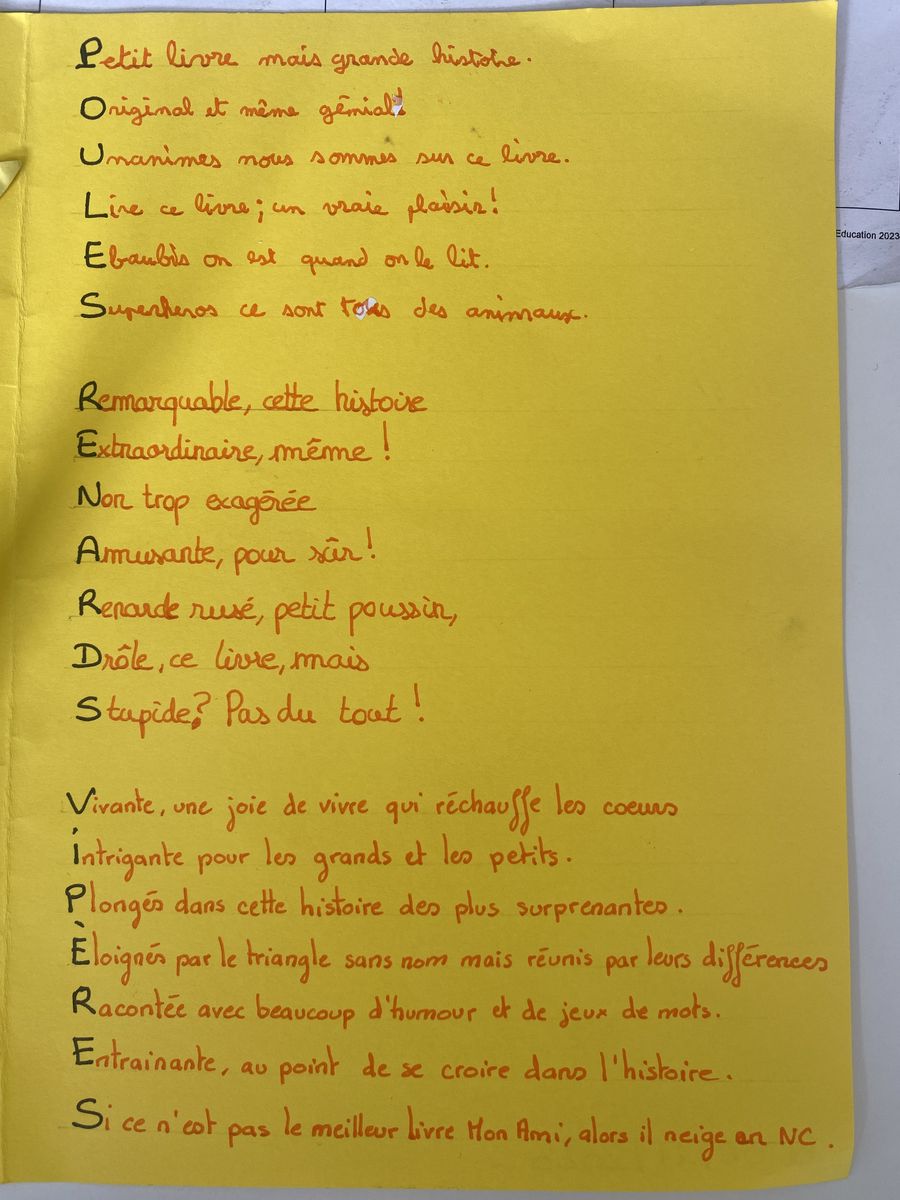 Petit livre mais grande histoire.
Original et même génial!
Unanimes nous sommes sur ce livre.
Lire ce livre; un vraie plaisir!
Ebaubis on est quand on le lit.
Superheros ce sont tous des animaux.
Remarquable, cette histoire
Extraordinaire, même !
Non trop exagérée
Amusante, pour sûr!
Renarde rusé, petit poussin,
Drôle, ce livre, mais
Stupide? Pas du tout !
Vivante, une joie de vivre qui réchauffe les coeurs
intrigante pour les grands et les petits.
Plongés dans cette histoire des plus surprenantes.
Èloignés par le triangle sans nom mais réunis par leurs différences
Racontée avec beaucoup d'humour et de jeux de mots.
Entrainante, au point de se croire dans l'histoire.
Si ce n'est pas le meilleur livre Mon Ami, alors il neige en NC.
Education 2023